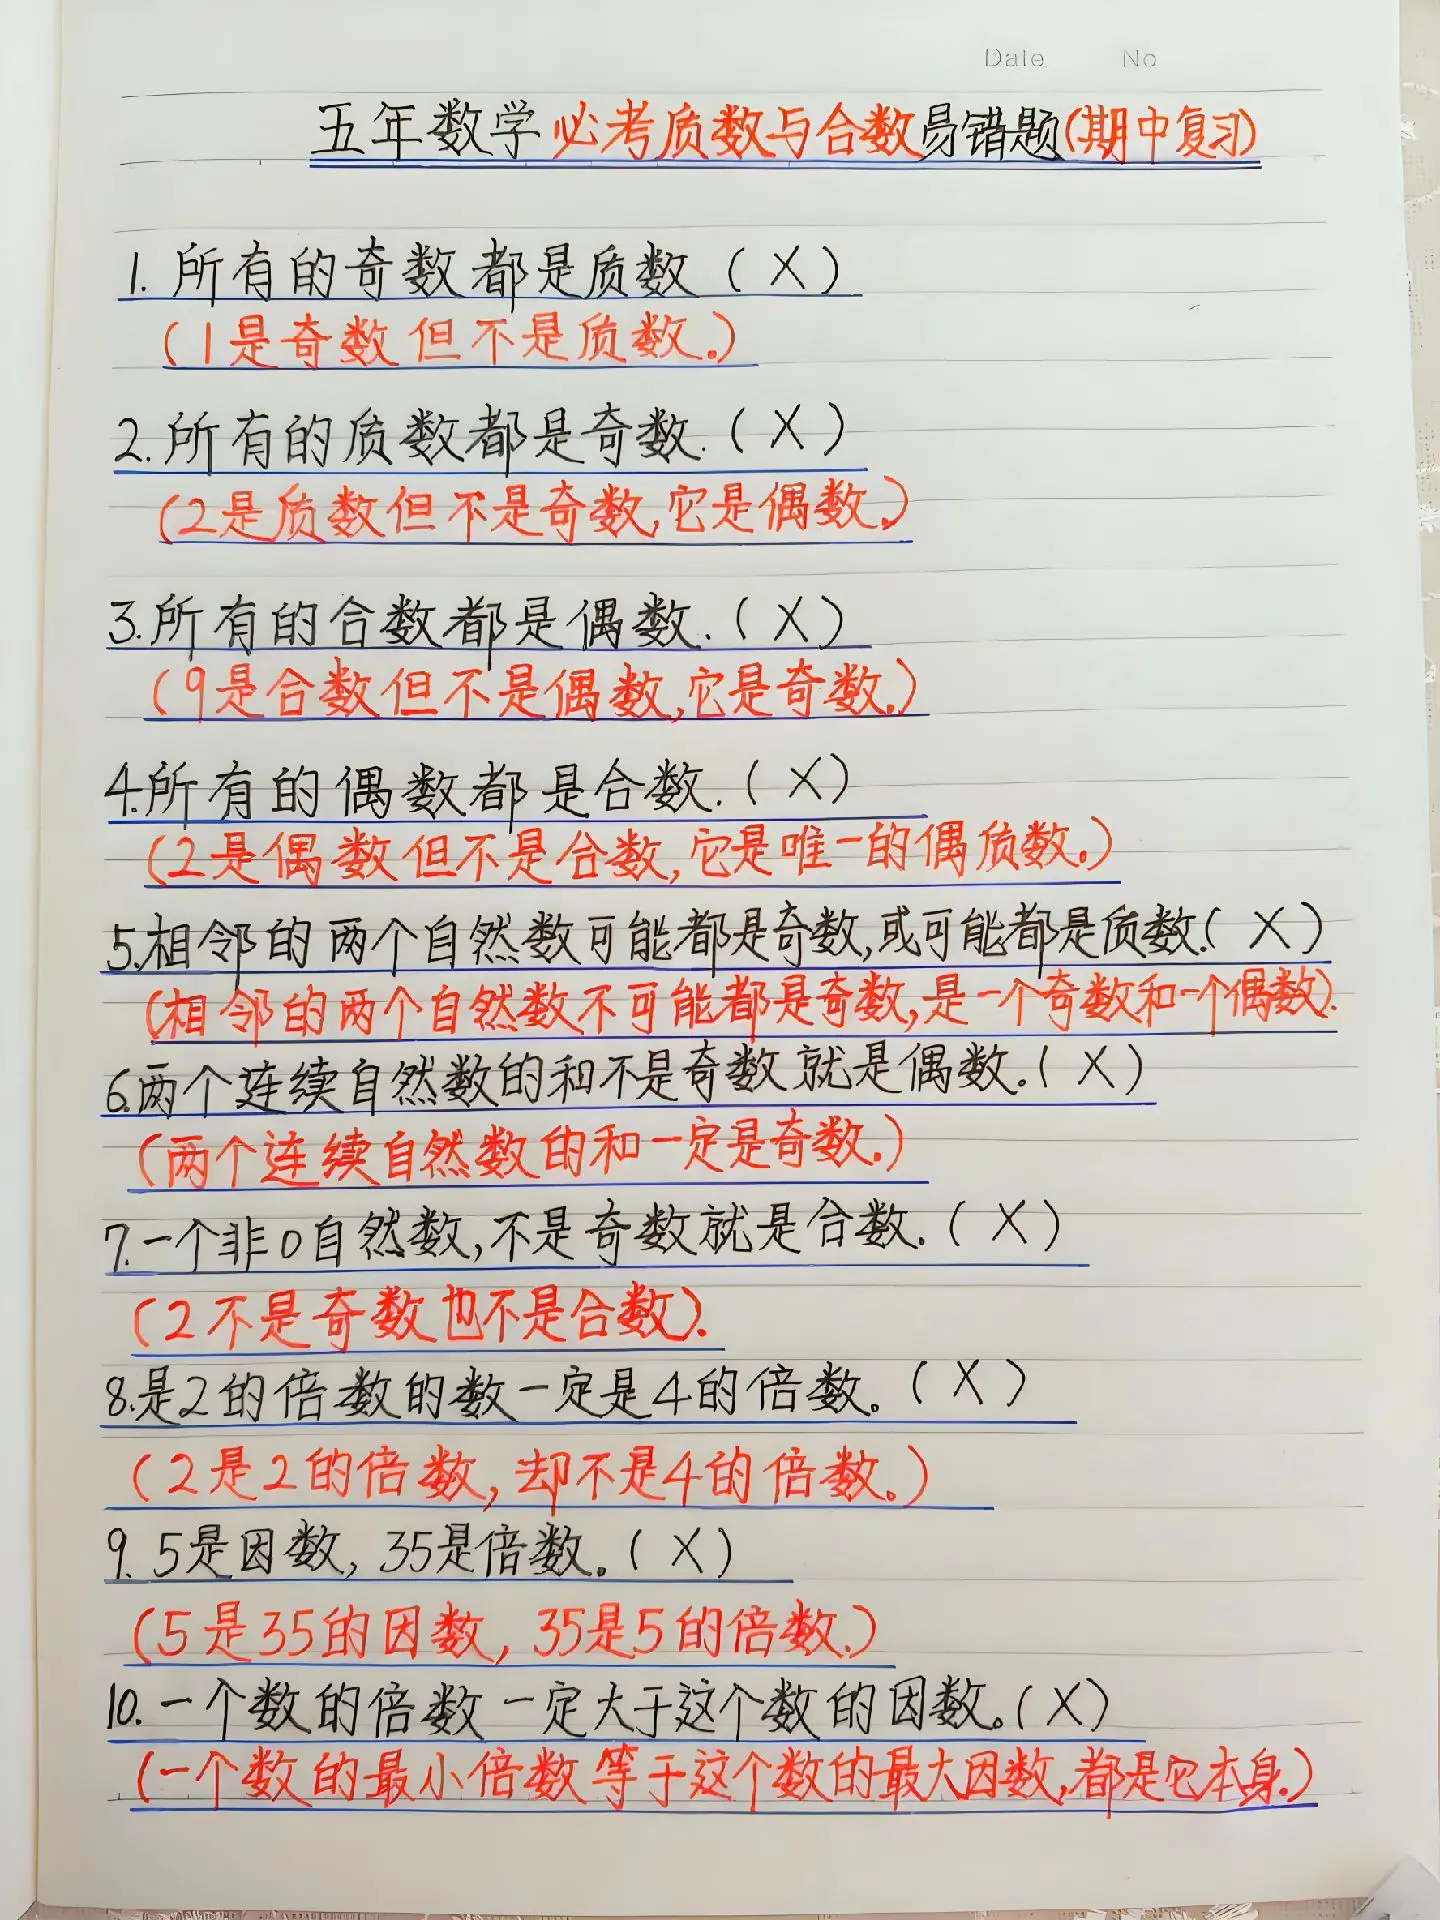 Date No
五年数学必考质数与合数易错题(期中复习)
1.所有的奇数都是质数(X)
(1是奇数但不是质数。)
2.所有的质数都是奇数.(X)
(2是质数但不是奇数,它是偶数。)
3.所有的合数都是偶数.(X)
(9是合数但不是偶数,它是奇数。)
4.所有的偶数都是合数.(X)
(2是偶数但不是合数,它是唯一的偶质数。)
5.相邻的两个自然数可能都是奇数,或可能都是质数.(X)
(相邻的两个自然数不可能都是奇数,是一个奇数和一个偶数).
6.两个连续自然数的和不是奇数就是偶数。(X)
(两个连续自然数的和一定是奇数。)
7.一个非0自然数,不是奇数就是合数.(X)
(2不是奇数也不是合数).
8.是2的倍数的数一定是4的倍数。(X)
(2是2的倍数,却不是4的倍数。)
9.5是因数,35是倍数。(X)
(5是35的因数,35是5的倍数.)
10.一个数的倍数一定大于这个数的因数。(X)
(一个数的最小倍数等于这个数的最大因数,都是它本身.)